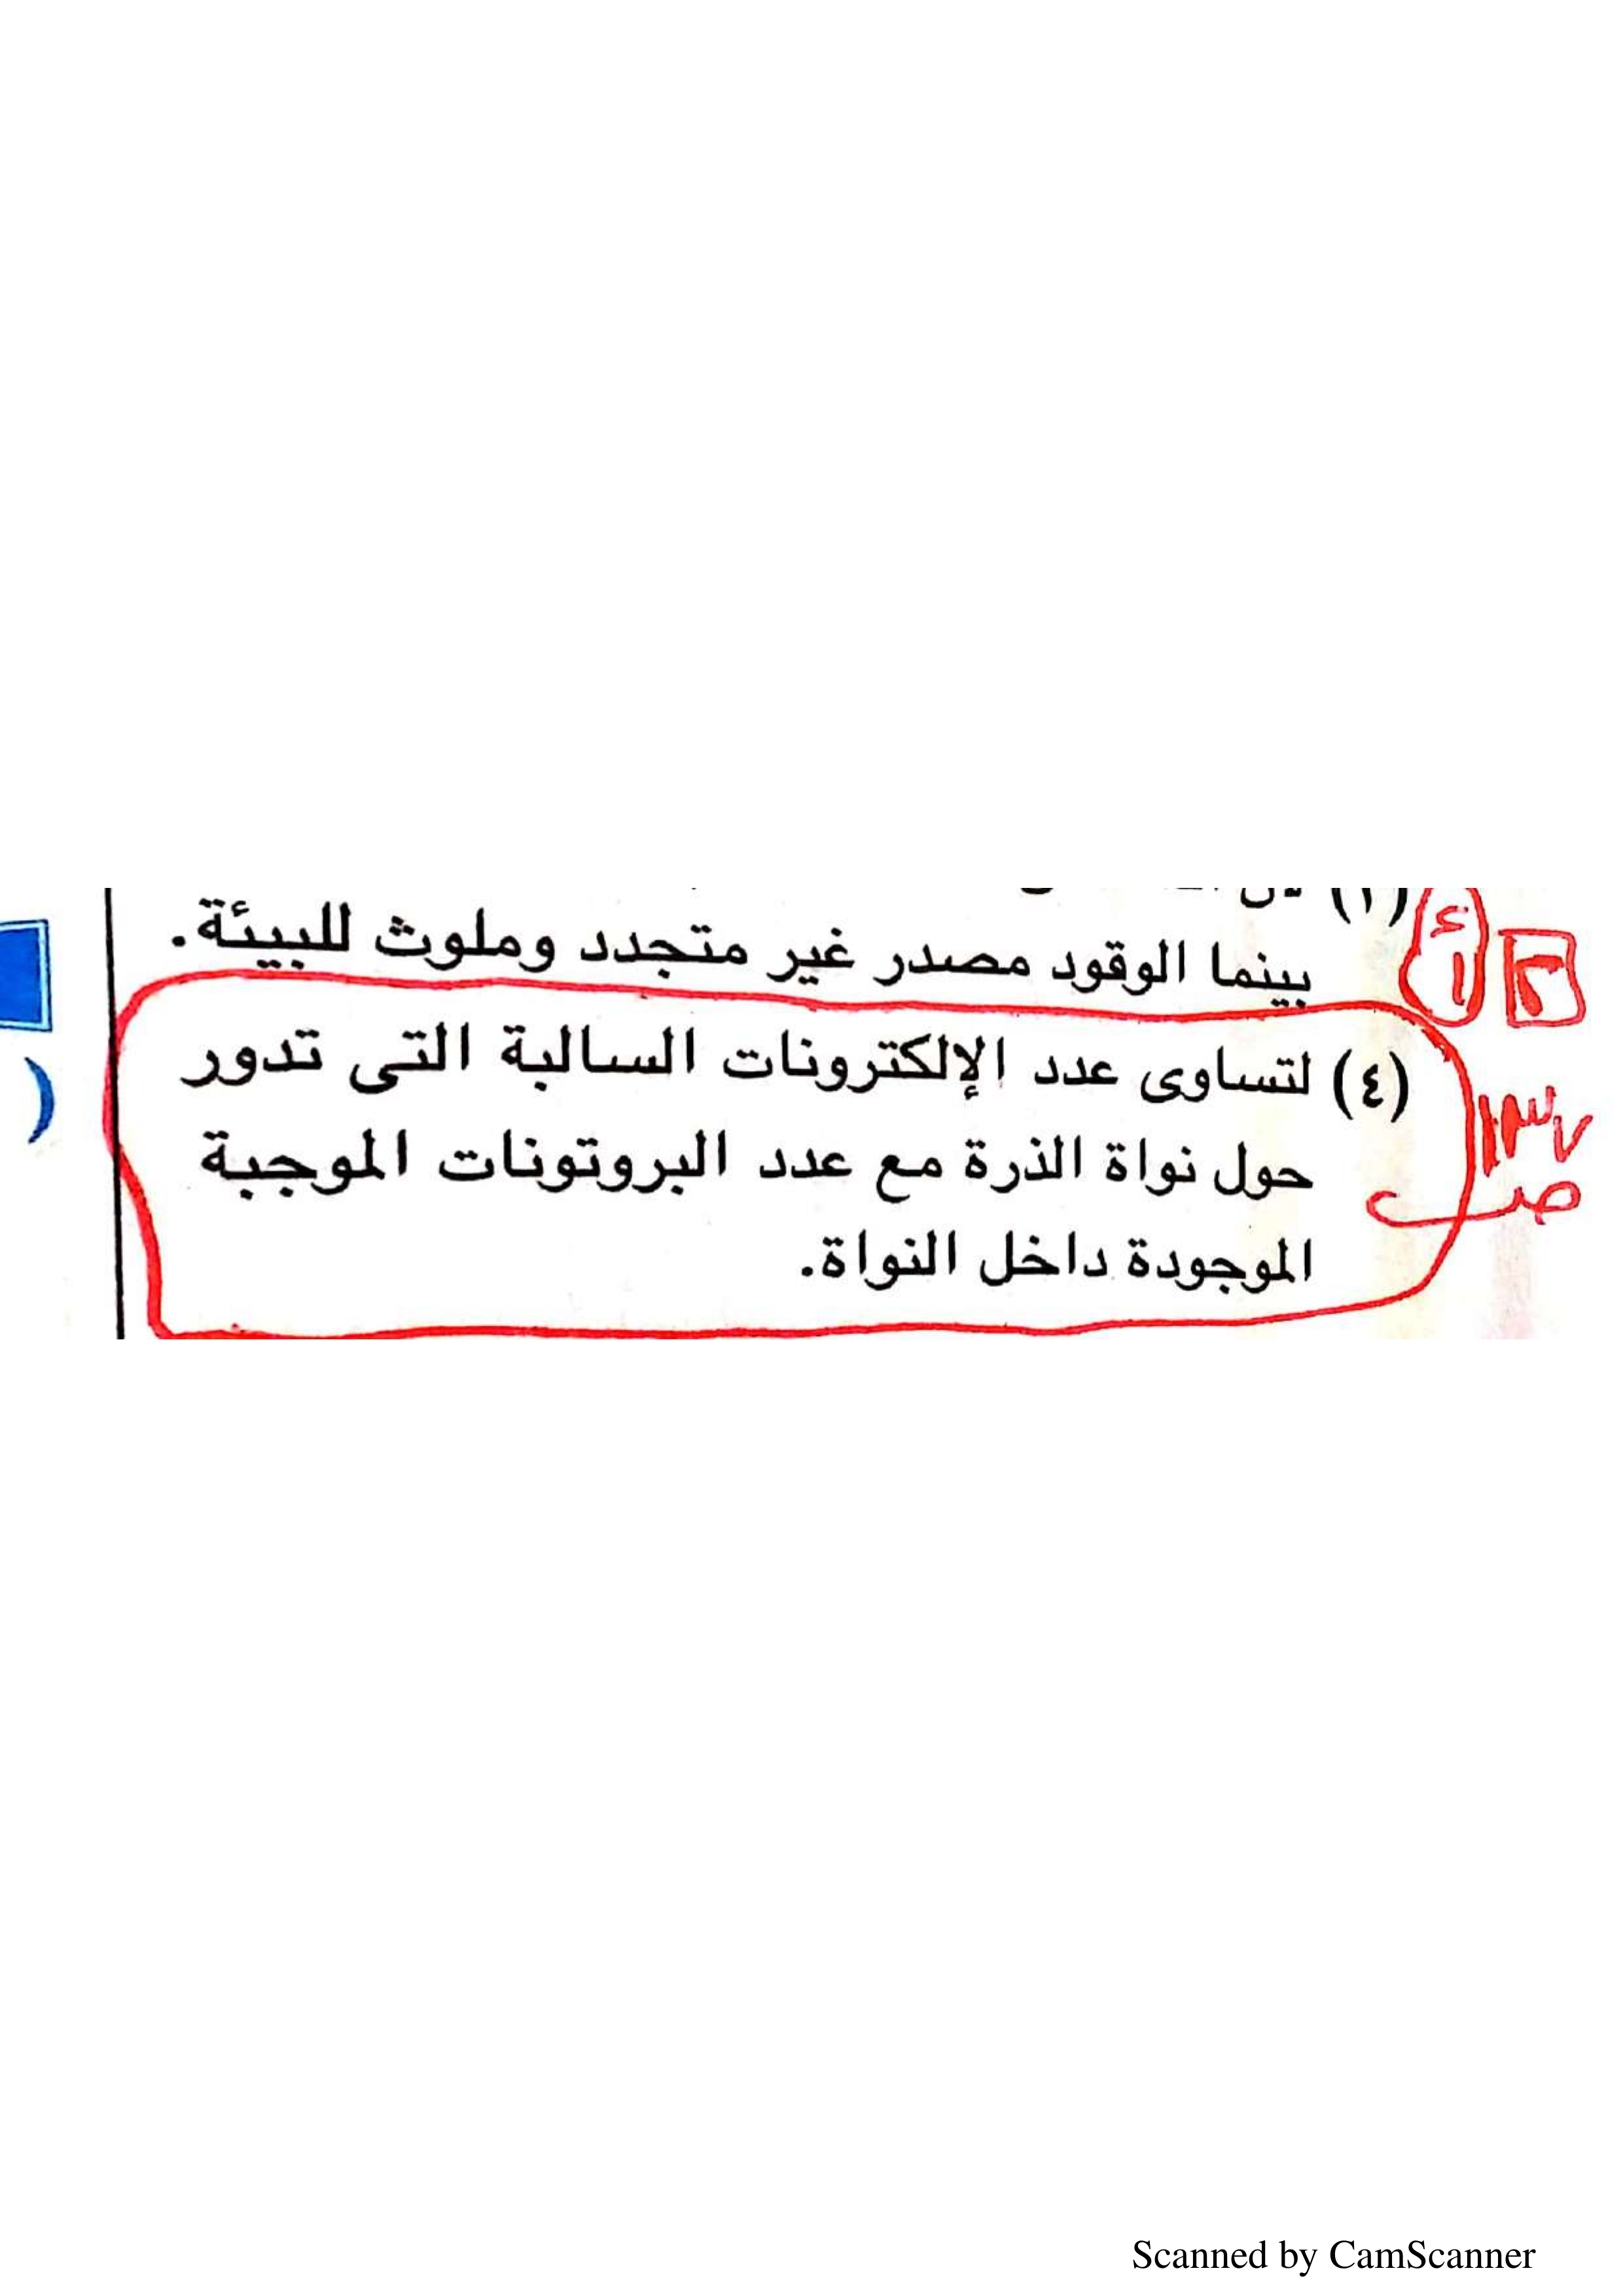 (١)
بينما الوقود مصدر غير متجدد وملوث للبيئة.
٢ أ
(٤) لتساوى عدد الإلكترونات السالبة التى تدور
حول نواة الذرة مع عدد البروتونات الموجبة
الموجودة داخل النواة.
١٣٧
صـ
Scanned by CamScanner